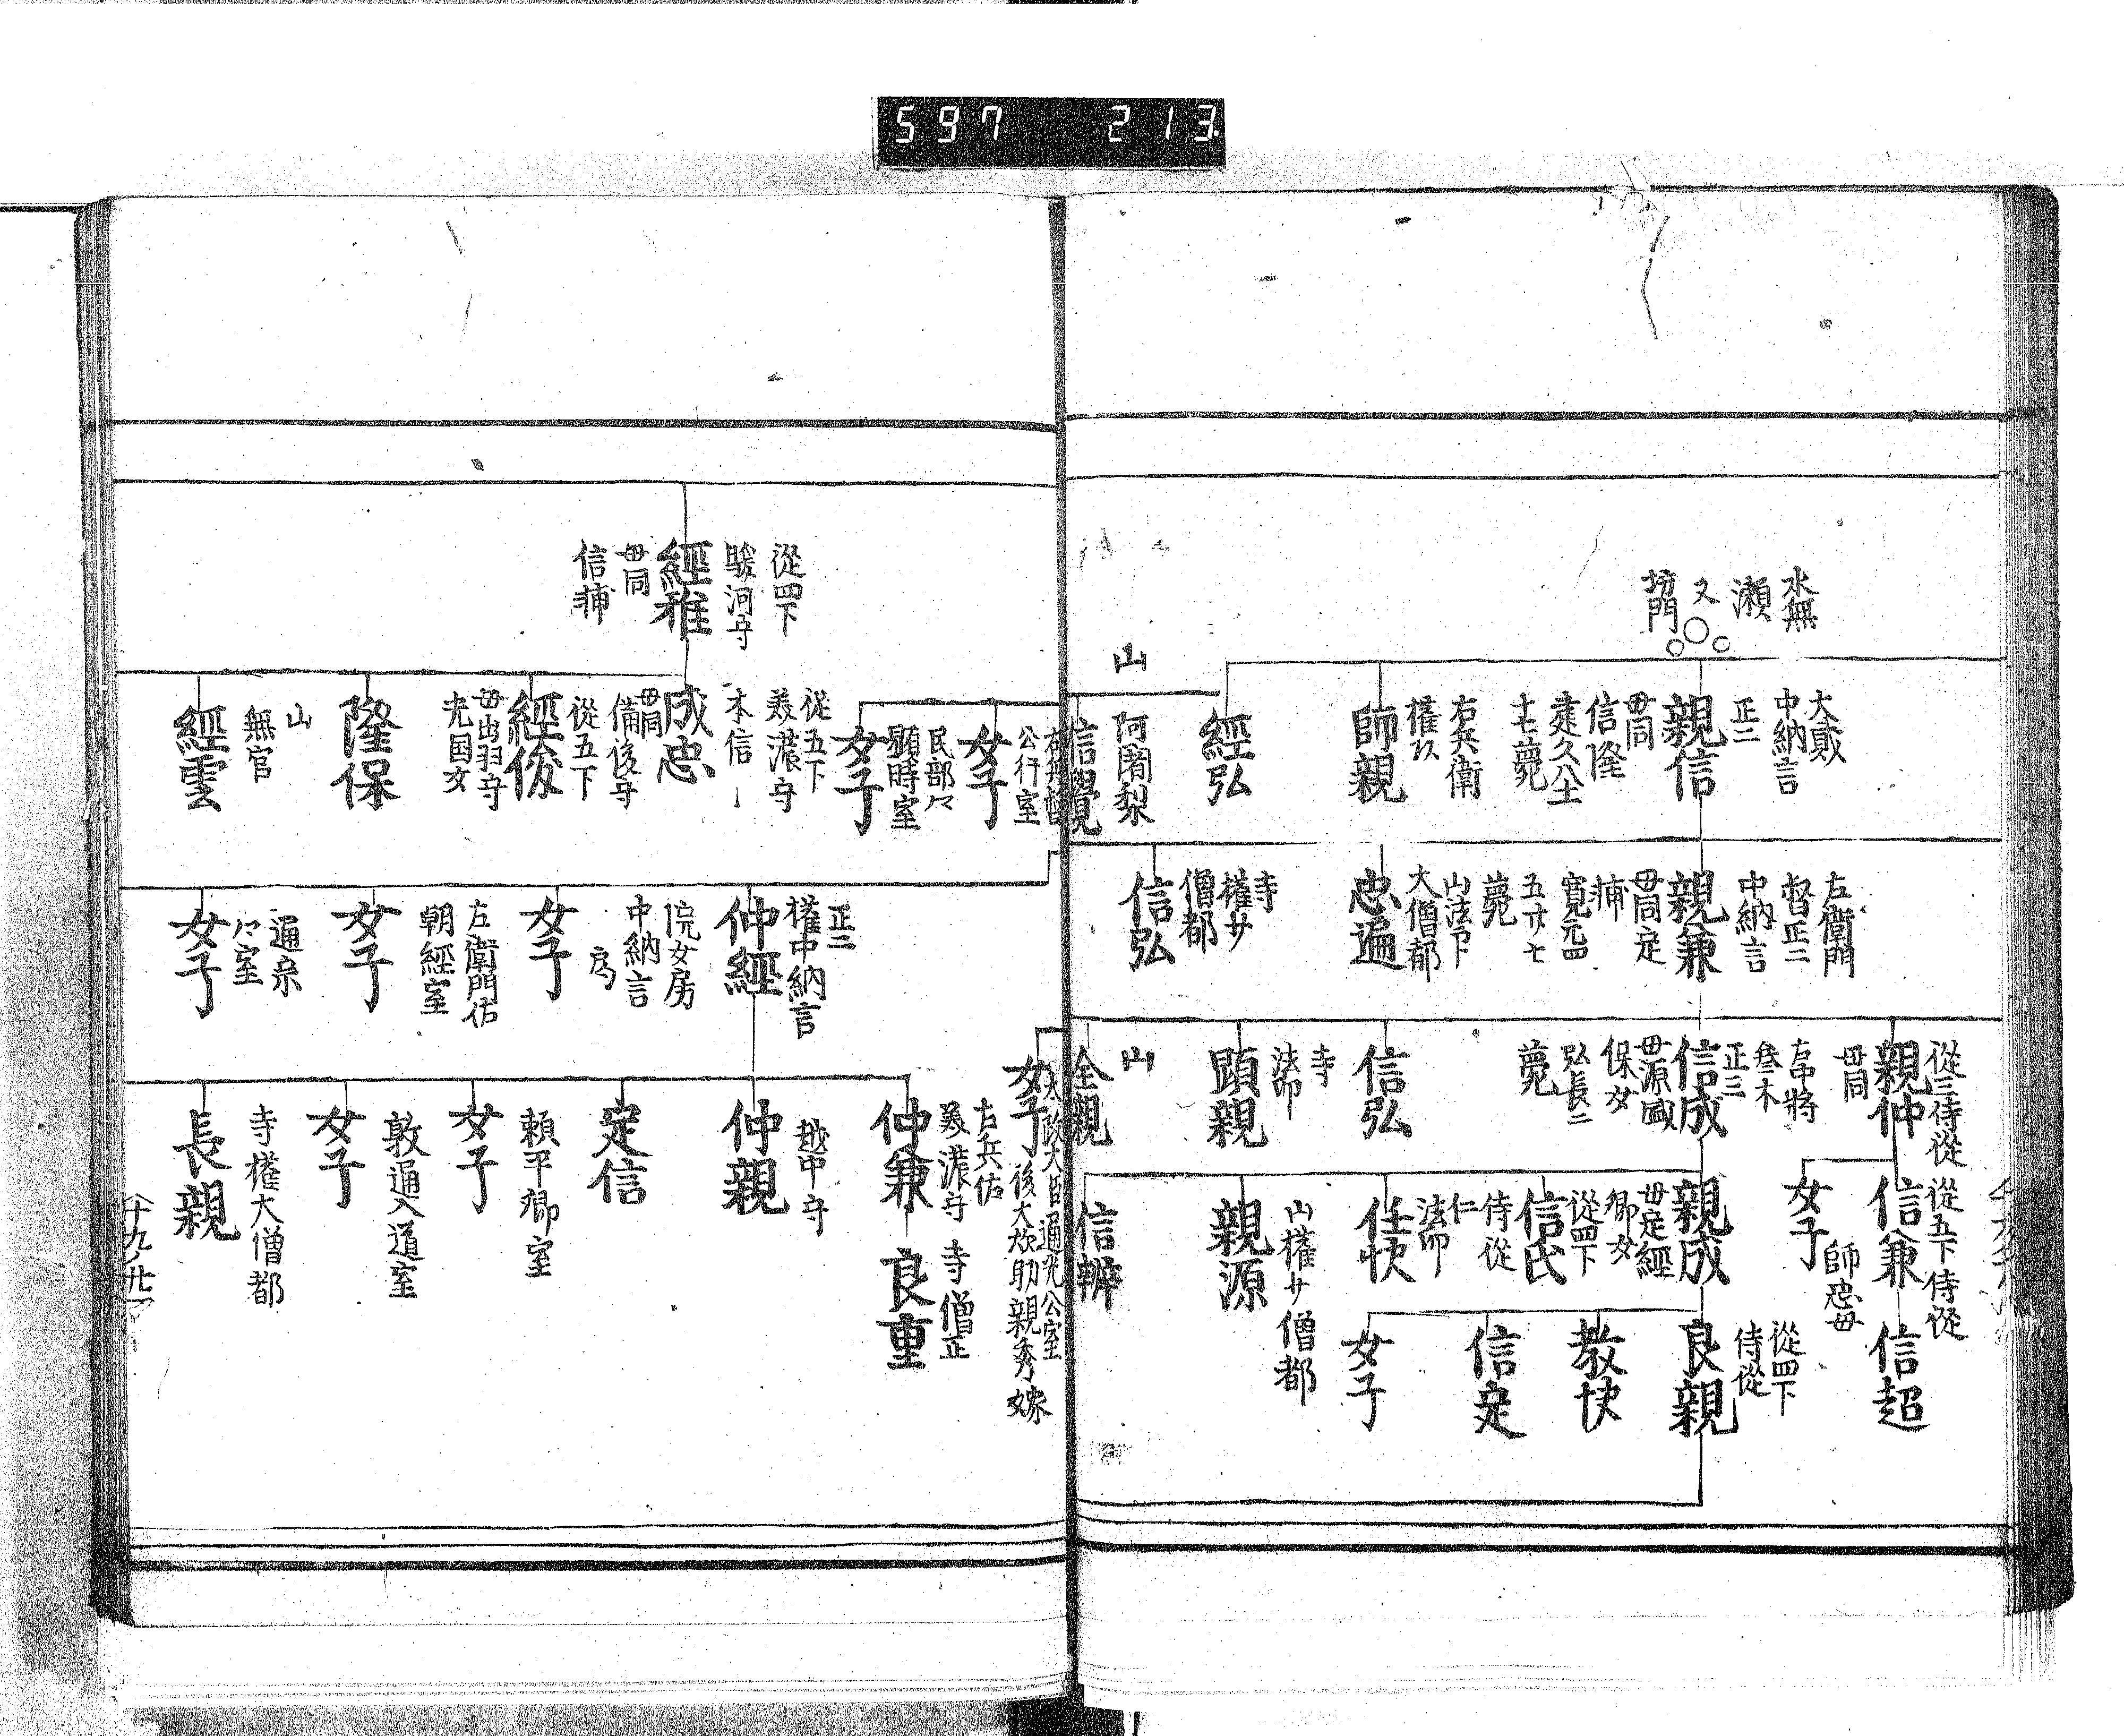 597 213
水無
瀬
又
坊門
大貳
中納言
正二
親信
母同
信隆
建久八七
十七薨
右兵衛
權佐
師親
經弘
山
阿闍梨
信覺
左衛門
督正二
中納言
親兼
母同定
輔
寛元四
五廿七
薨
山法印
大僧都
忠遍
寺
權少
僧都
信弘
從三侍從
親仲
母同
右中將
參木
正三
信成
母源國
保女
弘長二
薨
信弘
寺
法印
顕親
山
全親
從五下侍從
信兼
女子
師忠母
親成
母定經
卿女
從四下
信氏
侍從
仁
法印
任快
山權少僧都
親源
信辨
信超
從四下
侍從
良親
教快
信定
女子
右兵督
公行室
女子
民部々
顕時室
女子
從四下
駿河守
經雅
母同
信輔
從五下
美濃守
本信一
成忠
母同
備後守
從五下
經俊
母出羽守
光国女
隆保
山
無官
經雲
正二
權中納言
仲經
院女房
中納言
女子
左衛門佐
朝經室
女子
通宗
々室
女子
太政大臣通光公室
後大炊助親秀嫁
女子
右兵佐
美濃守
仲兼
寺僧正
良重
越中守
仲親
定信
頼平卿室
女子
敦通入道室
女子
寺權大僧都
長親